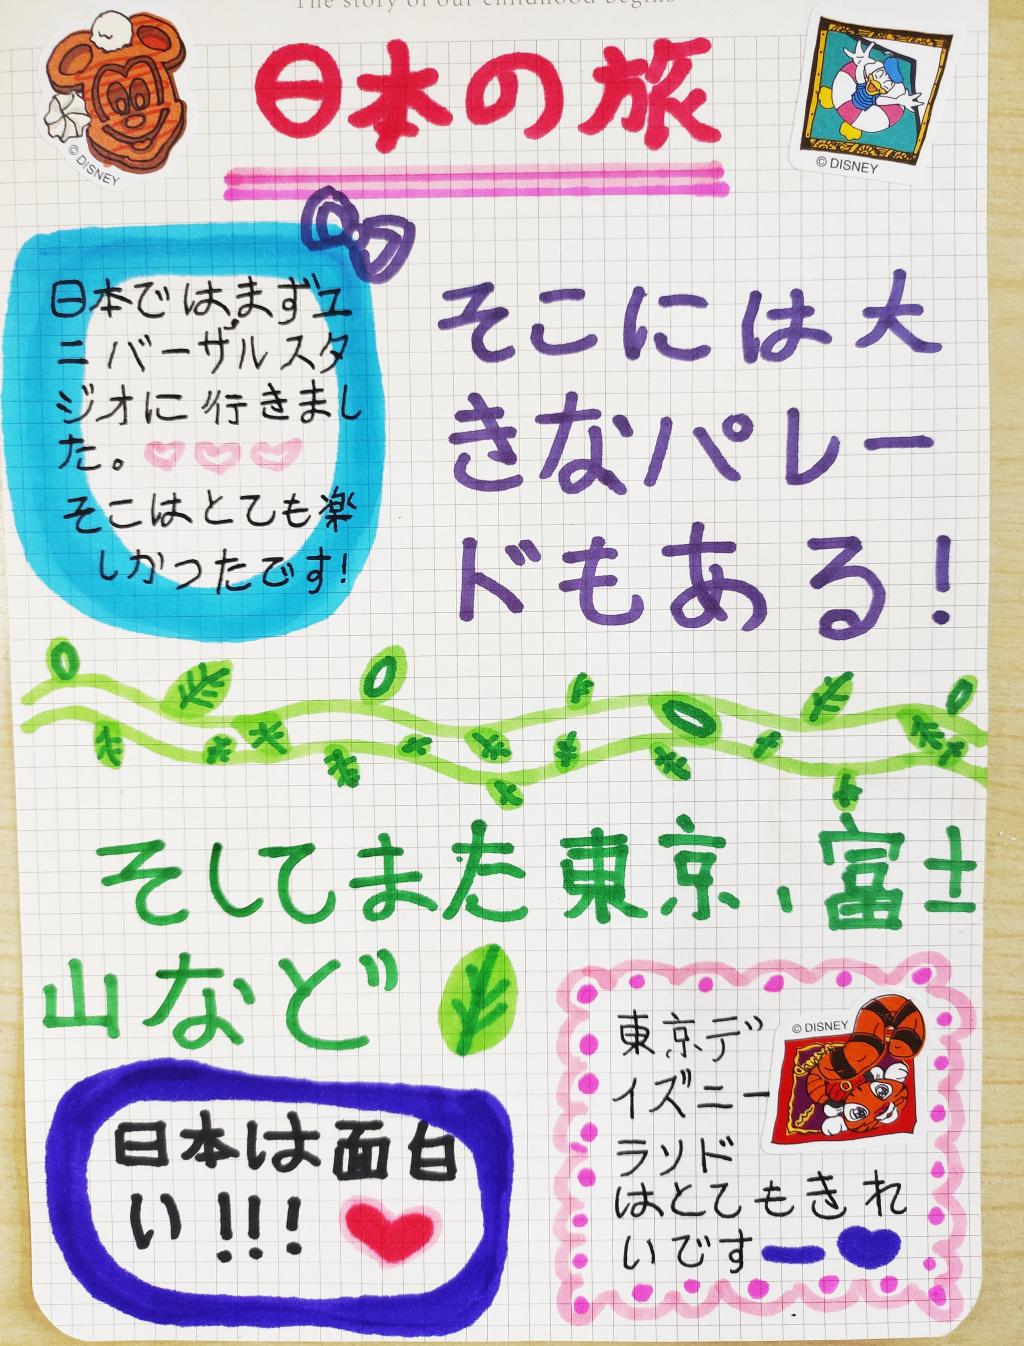 The story of our childhood begins
日本の旅
© DISNEY
© DISNEY
日本では、まずユ
ニバーザルスタ
ジオに行きまし
た。
そこはとても楽
しかったです!
そこには大
きなパレー
ドもある!
そしてまた東京、富士
山など
日本は面白
い!!!
東京デ
ィズニー
ランド
はとてもきれ
いです
© DISNEY